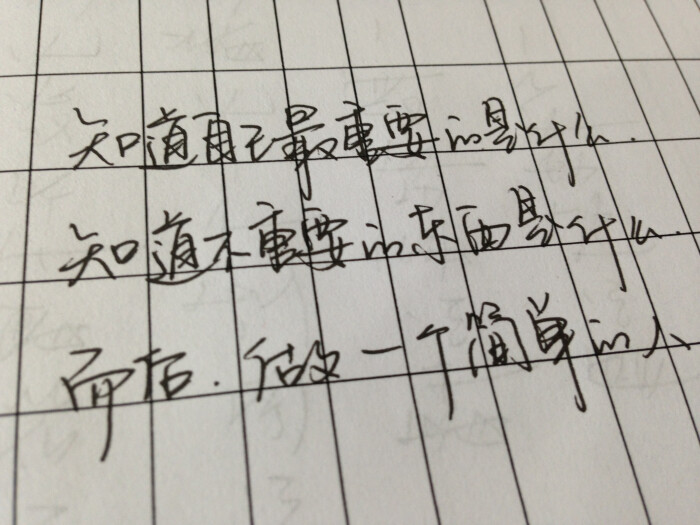 知道自己最重要的是什么.
知道不重要的东西是什么.
而后.做一个简单的人